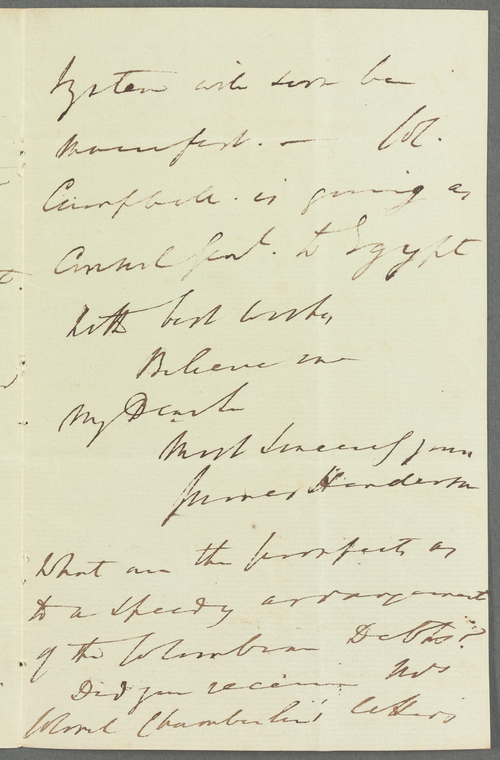 System will soon be
manifest. — Col.
Campbell is going as
Consul Genl. to Egypt
With best wishes
Believe me
My Dear
Most Sincerely yours
James Henderson
What are the prospects as
to a speedy arrangement
of the Colombian Debts?
Did you receive Mrs
Colonel Chamberlin's letters